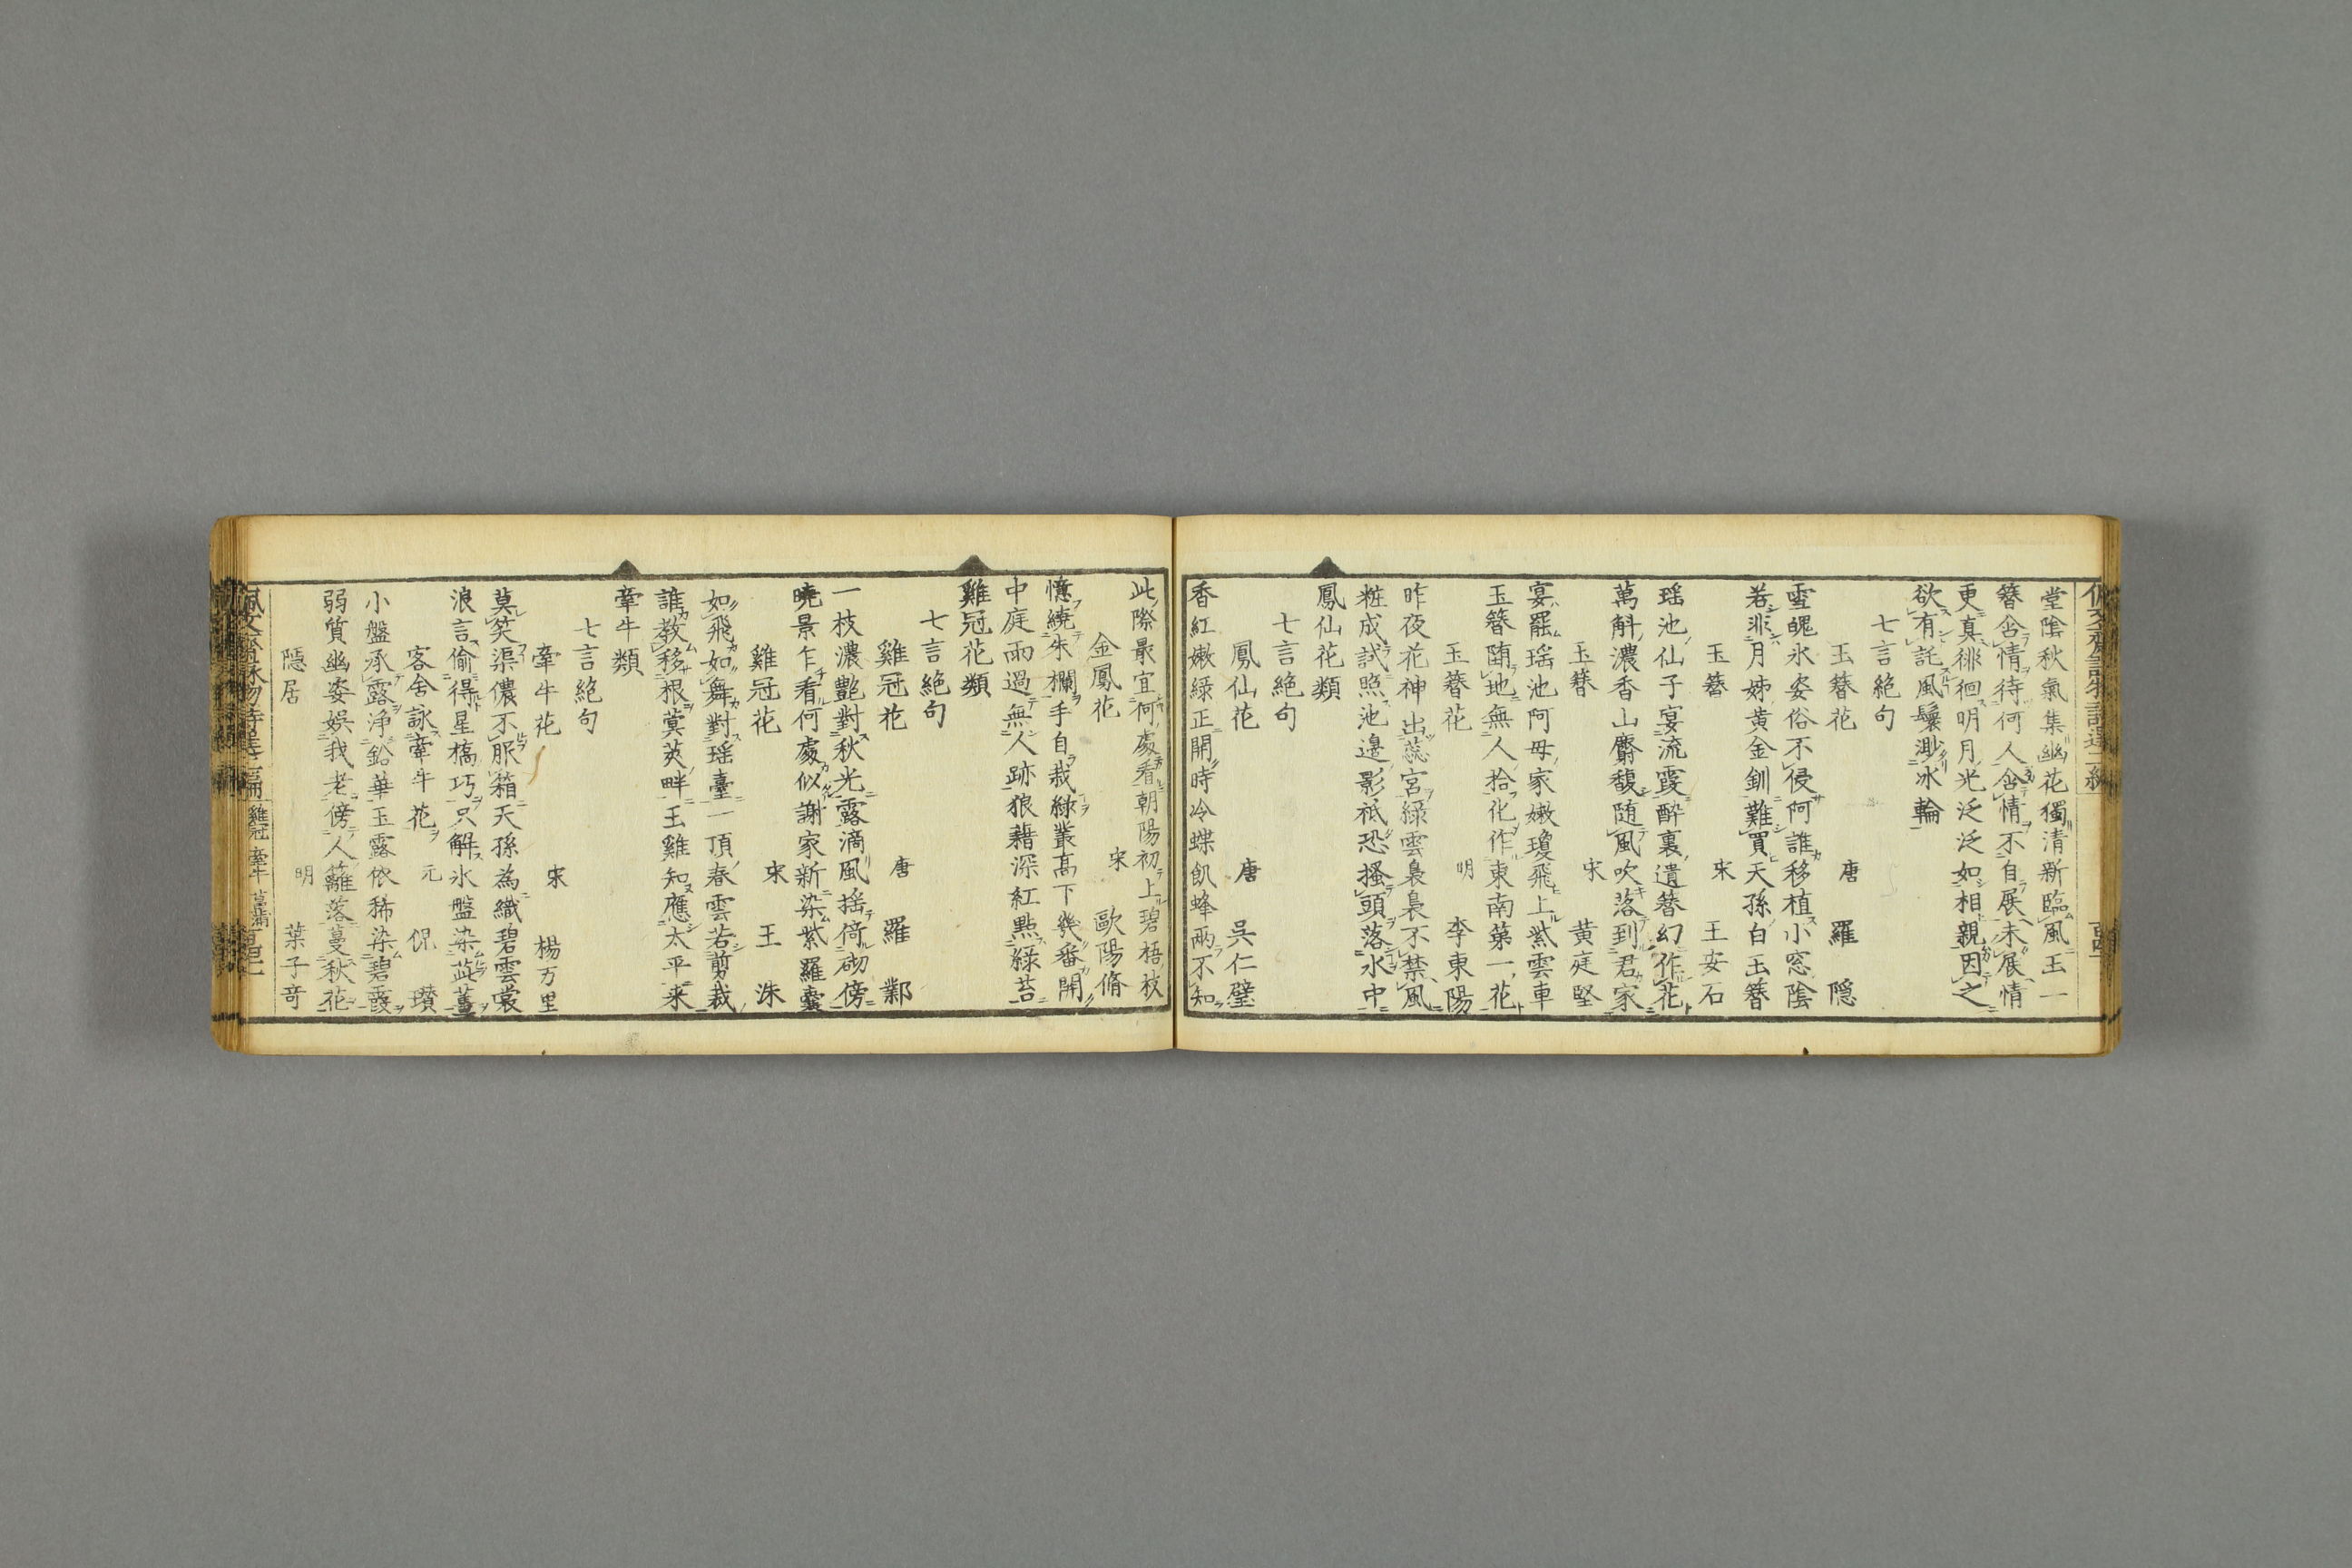 堂陰秋氣集幽花獨清新臨風玉一
簪含情待何人含情不自展未展情
更真徘徊明月光泛泛如相親因之
欲有託風鬟渺冰輪
七言絶句
玉簪花 唐 羅隠
雪魄氷姿俗不侵阿誰移植小窓陰
若非月姊黄金釧難買天孫白玉簪
玉簪 宋 王安石
瑶池仙子宴流霞醉裏遺簪幻作花
萬斛濃香山麝馥随風吹落到君家
玉簪 宋 黄庭堅
宴罷瑶池阿母家嫩瓊飛上紫雲車
玉簪堕地無人拾化作東南第一花
玉簪花 明 李東陽
昨夜花神出蕊宮緑雲裊裊不禁風
粧成試照池邊影祇恐搔頭落水中
鳳仙花類
七言絶句
鳳仙花 唐 呉仁璧
香紅嫩緑正開時冷蝶飢蜂兩不知
此際最宜何處看朝陽初上碧梧枝
金鳳花 宋 歐陽脩
憶繞朱欄手自栽緑叢髙下幾番開
中庭雨過無人跡狼藉深紅點緑苔
雞冠花類
七言絶句
雞冠花 唐 羅鄴
一枝濃艶對秋光露滴風揺倚砌傍
曉景乍看何處似謝家新染紫羅囊
雞冠花 宋 王洙
如飛如舞對瑶臺一頂春雲若剪裁
誰教移根蓂莢畔王雞知應太平来
牽牛類
七言絶句
牽牛花 宋 楊万里
莫笑渠儂不服箱天孫為織碧雲裳
浪言偷得星橋巧只解氷盤染茈薑
客舍詠牽牛花 元 倪瓚
小盤承露淨鉛華玉露依稀染碧霞
弱質幽姿娯我老傍人籬落蔓秋花
隠居 明 葉子竒